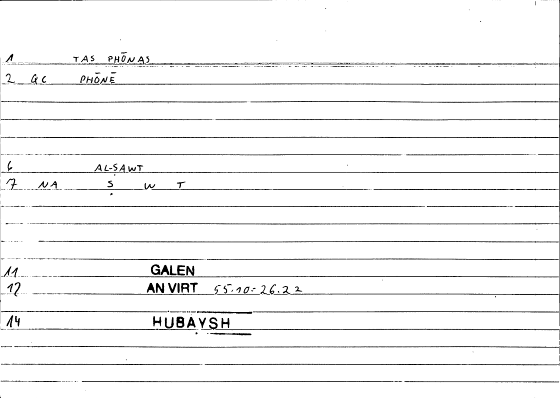 1 TAS PHŌNAS
2 GC PHŌNĒ
6 AL-ṢAWT
7 NA Ṣ W T
11 GALEN
12 AN VIRT 55.10-26.22
14 HUBAYSH